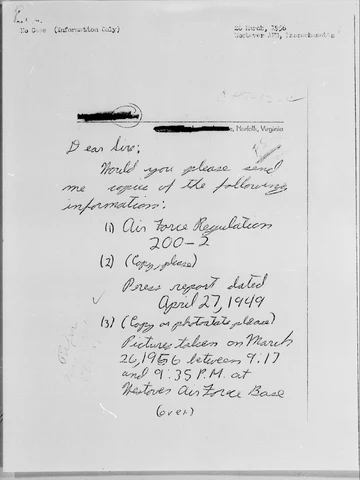 No Case (Information Only)
26 March, 1956
Westover AFB, Massachusetts
Norfolk, Virginia
Dear Sirs:
Would you please send
me copies of the following
information:
(1) Air Force Regulation
200-2
(2) (Copy, please)
Press report dated
April 27, 1949
(3) (Copy or photostats please)
Pictures taken on March
26, 1956 between 9:17
and 9:35 P.M. at
Westover Air Force Base
(over)